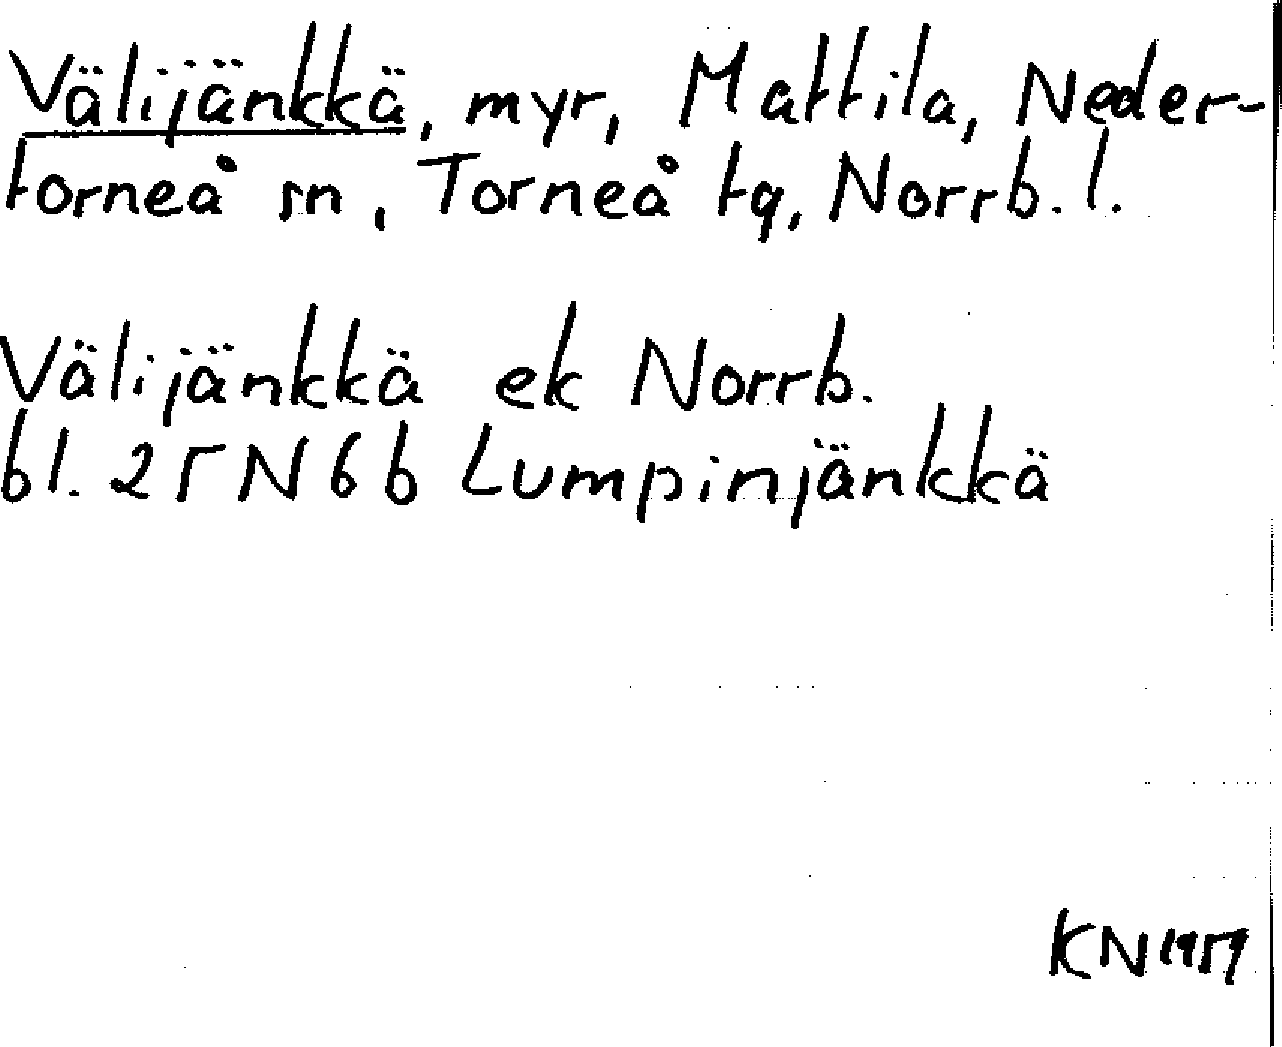 Välijänkkä, myr, Mattila, Neder-
torneå sn, Torneå tg, Norrb. l.
Välijänkkä ek Norrb.
bl. 25 N 6 b Lumpinjänkkä
KN 1959